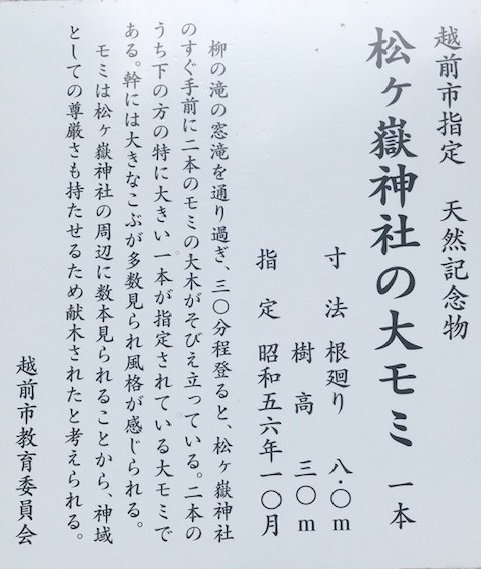 越前市指定　天然記念物
松ヶ嶽神社の大モミ　一本
寸法　根廻り　八・〇m
樹高　三〇m
指定　昭和五六年一〇月
柳の滝の窓滝を通り過ぎ、三〇分程登ると、松ヶ嶽神社
のすぐ手前に二本のモミの大木がそびえ立っている。二本の
うち下の方の特に大きい一本が指定されている大モミで
ある。幹には大きなこぶが多数見られ風格が感じられる。
モミは松ヶ嶽神社の周辺に数本見られることから、神域
としての尊厳さも持たせるため献木されたと考えられる。
越前市教育委員会